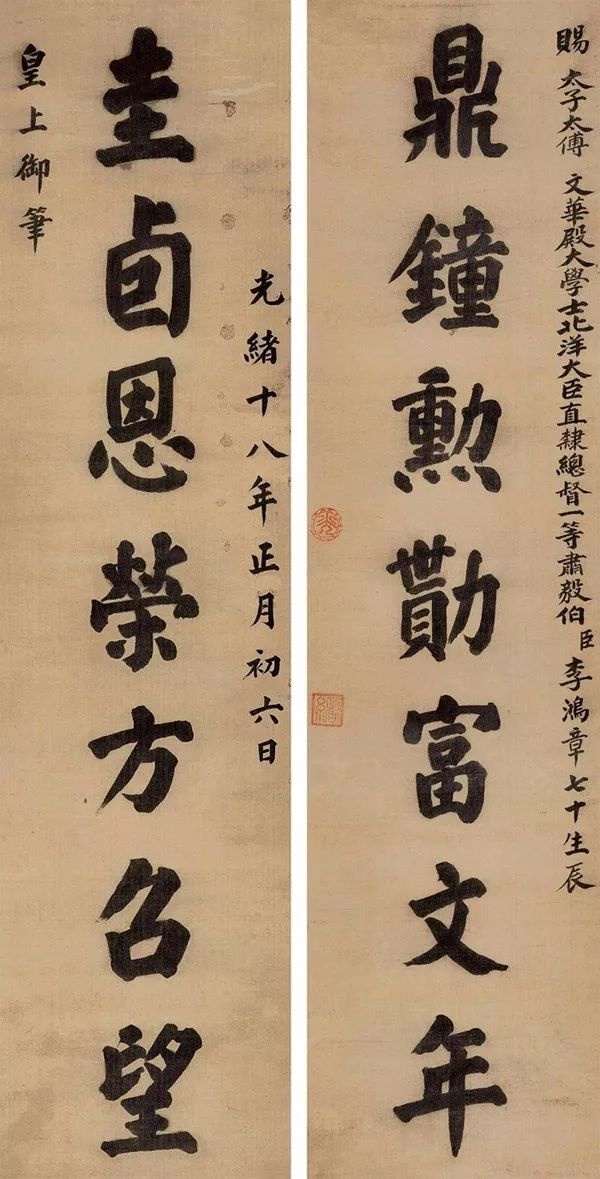 賜太子太傅文華殿大學士北洋大臣直隸總督一等肅毅伯臣李鴻章七十生辰
鼎鐘勲勩富文年
光緒十八年正月初六日
圭卣恩榮方召望
皇上御筆